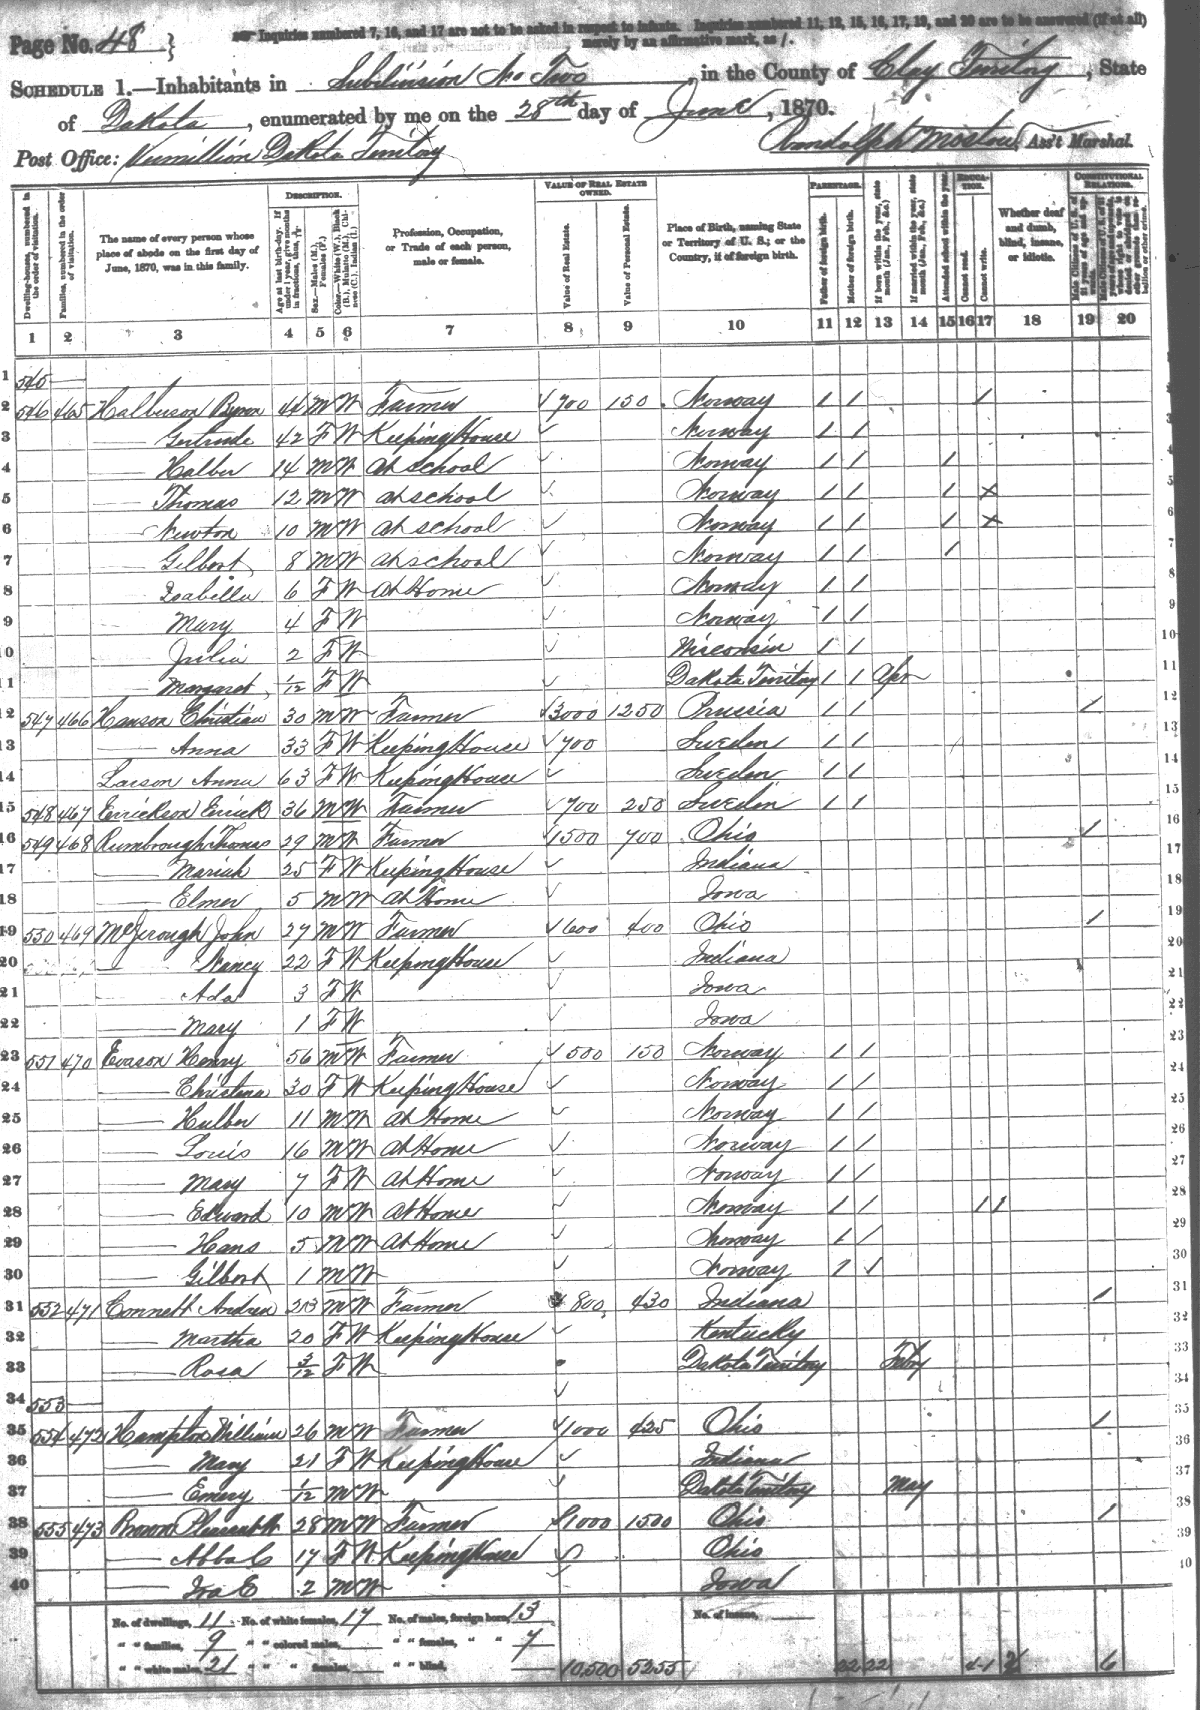 Page No. 48
Inquiries numbered 7, 16, and 17 are not to be asked in respect to infants. Inquiries numbered 11, 12, 15, 16, 17, 19, and 20 are to be answered (if at all)
merely by an affirmative mark, as /.
SCHEDULE 1.—Inhabitants in Subdivision No Two, in the County of Clay Territory, State
of Dakota, enumerated by me on the 28th day of June, 1870.
Post Office: Vermillion Dakota Territory Randolph Ass't Marshal.
DESCRIPTION. VALUE OF REAL ESTATE OWNED. PARENTAGE. EDUCATION. CONSTITUTIONAL RELATIONS.
Dwelling-houses, numbered in the order of visitation.
Families, numbered in the order of visitation.
The name of every person whose place of abode on the first day of June, 1870, was in this family.
Age at last birth-day. If under 1 year, give months in fractions, thus,
Sex.—Males (M.), Females (F.)
Color.—White (W.), Black (B.), Mulatto (M.), Chinese (C.), Indian (I.)
Profession, Occupation, or Trade of each person, male or female.
Value of Real Estate.
Value of Personal Estate.
Place of Birth, naming State or Territory of U. S.; or the Country, if of foreign birth.
Father of foreign birth.
Mother of foreign birth.
If born within the year, state month (Jan., Feb., &c.)
If married within the year, state month (Jan., Feb., &c.)
Attended school within the year.
Cannot read.
Cannot write.
Whether deaf and dumb, blind, insane, or idiotic.
Male Citizens of U. S. of 21 years of age and upwards.
1 2 3 4 5 6 7 8 9 10 11 12 13 14 15 16 17 18 19 20
1 545
2 546 465 Halverson Byron 44 M W Farmer 700 150 Norway / / /
3 Gertrude 42 F W Keeping House Norway / /
4 Halber 14 M W At school Norway / / /
5 Thomas 12 M W At school Norway / / / x
6 Newton 10 M W At school Norway / / / x
7 Gilbert 8 M W At school Norway / / /
8 Isabella 6 F W At Home Norway / /
9 Mary 4 F W Norway / /
10 Julia 2 F W Wisconsin / /
11 Margaret 1/12 F W Dakota Territory / / Apr
12 547 466 Hanson Christian 30 M W Farmer 3000 1250 Prussia / / /
13 Anna 33 F W Keeping House 700 Sweden / /
14 Larson Anna 63 F W Keeping House Sweden / /
15 548 467 Errickson Errick 36 M W Farmer 700 250 Sweden / /
16 549 468 Rumbrough Thomas 29 M W Farmer 1500 700 Ohio /
17 Mariah 25 F W Keeping House Indiana
18 Elmer 5 M W At Home Iowa
19 550 469 John 27 M W Farmer 600 400 Ohio /
20 Nancy 22 F W Keeping House Indiana
21 Ada 3 F W Iowa
22 Mary 1 F W Iowa
23 551 470 Evason Henry 56 M W Farmer 500 150 Norway / /
24 Christena 30 F W Keeping House Norway / /
25 Hulber 11 M W At Home Norway / /
26 Louis 16 M W At Home Norway / /
27 Mary 7 F W At Home Norway / /
28 Edward 10 M W At Home Norway / / / /
29 Hans 5 M W At Home Norway / /
30 Gilbert 1 M W Norway / /
31 552 471 Connett Andrew 23 M W Farmer 800 430 Indiana /
32 Martha 20 F W Keeping House Kentucky
33 Rosa 3/12 F W Dakota Territory Feby
34 553
35 554 472 Hampton William 26 M W Farmer 1000 425 Ohio /
36 Mary 21 F W Keeping House Indiana
37 Emery 1/12 M W Dakota Territory May
38 555 473 Brown Pleasant W 28 M W Farmer 1000 1500 Ohio /
39 Abba C 17 F W Keeping House Ohio
40 Ira E 2 M W Iowa
No. of dwellings, 11 No. of white females, 17 No. of males, foreign born, 13 No. of insane,
" " families, 9 " " colored males, " " females, " " 7
" " white males, 21 " " " females, " " blind, 10,500 5255 22 22 4 1 2 6